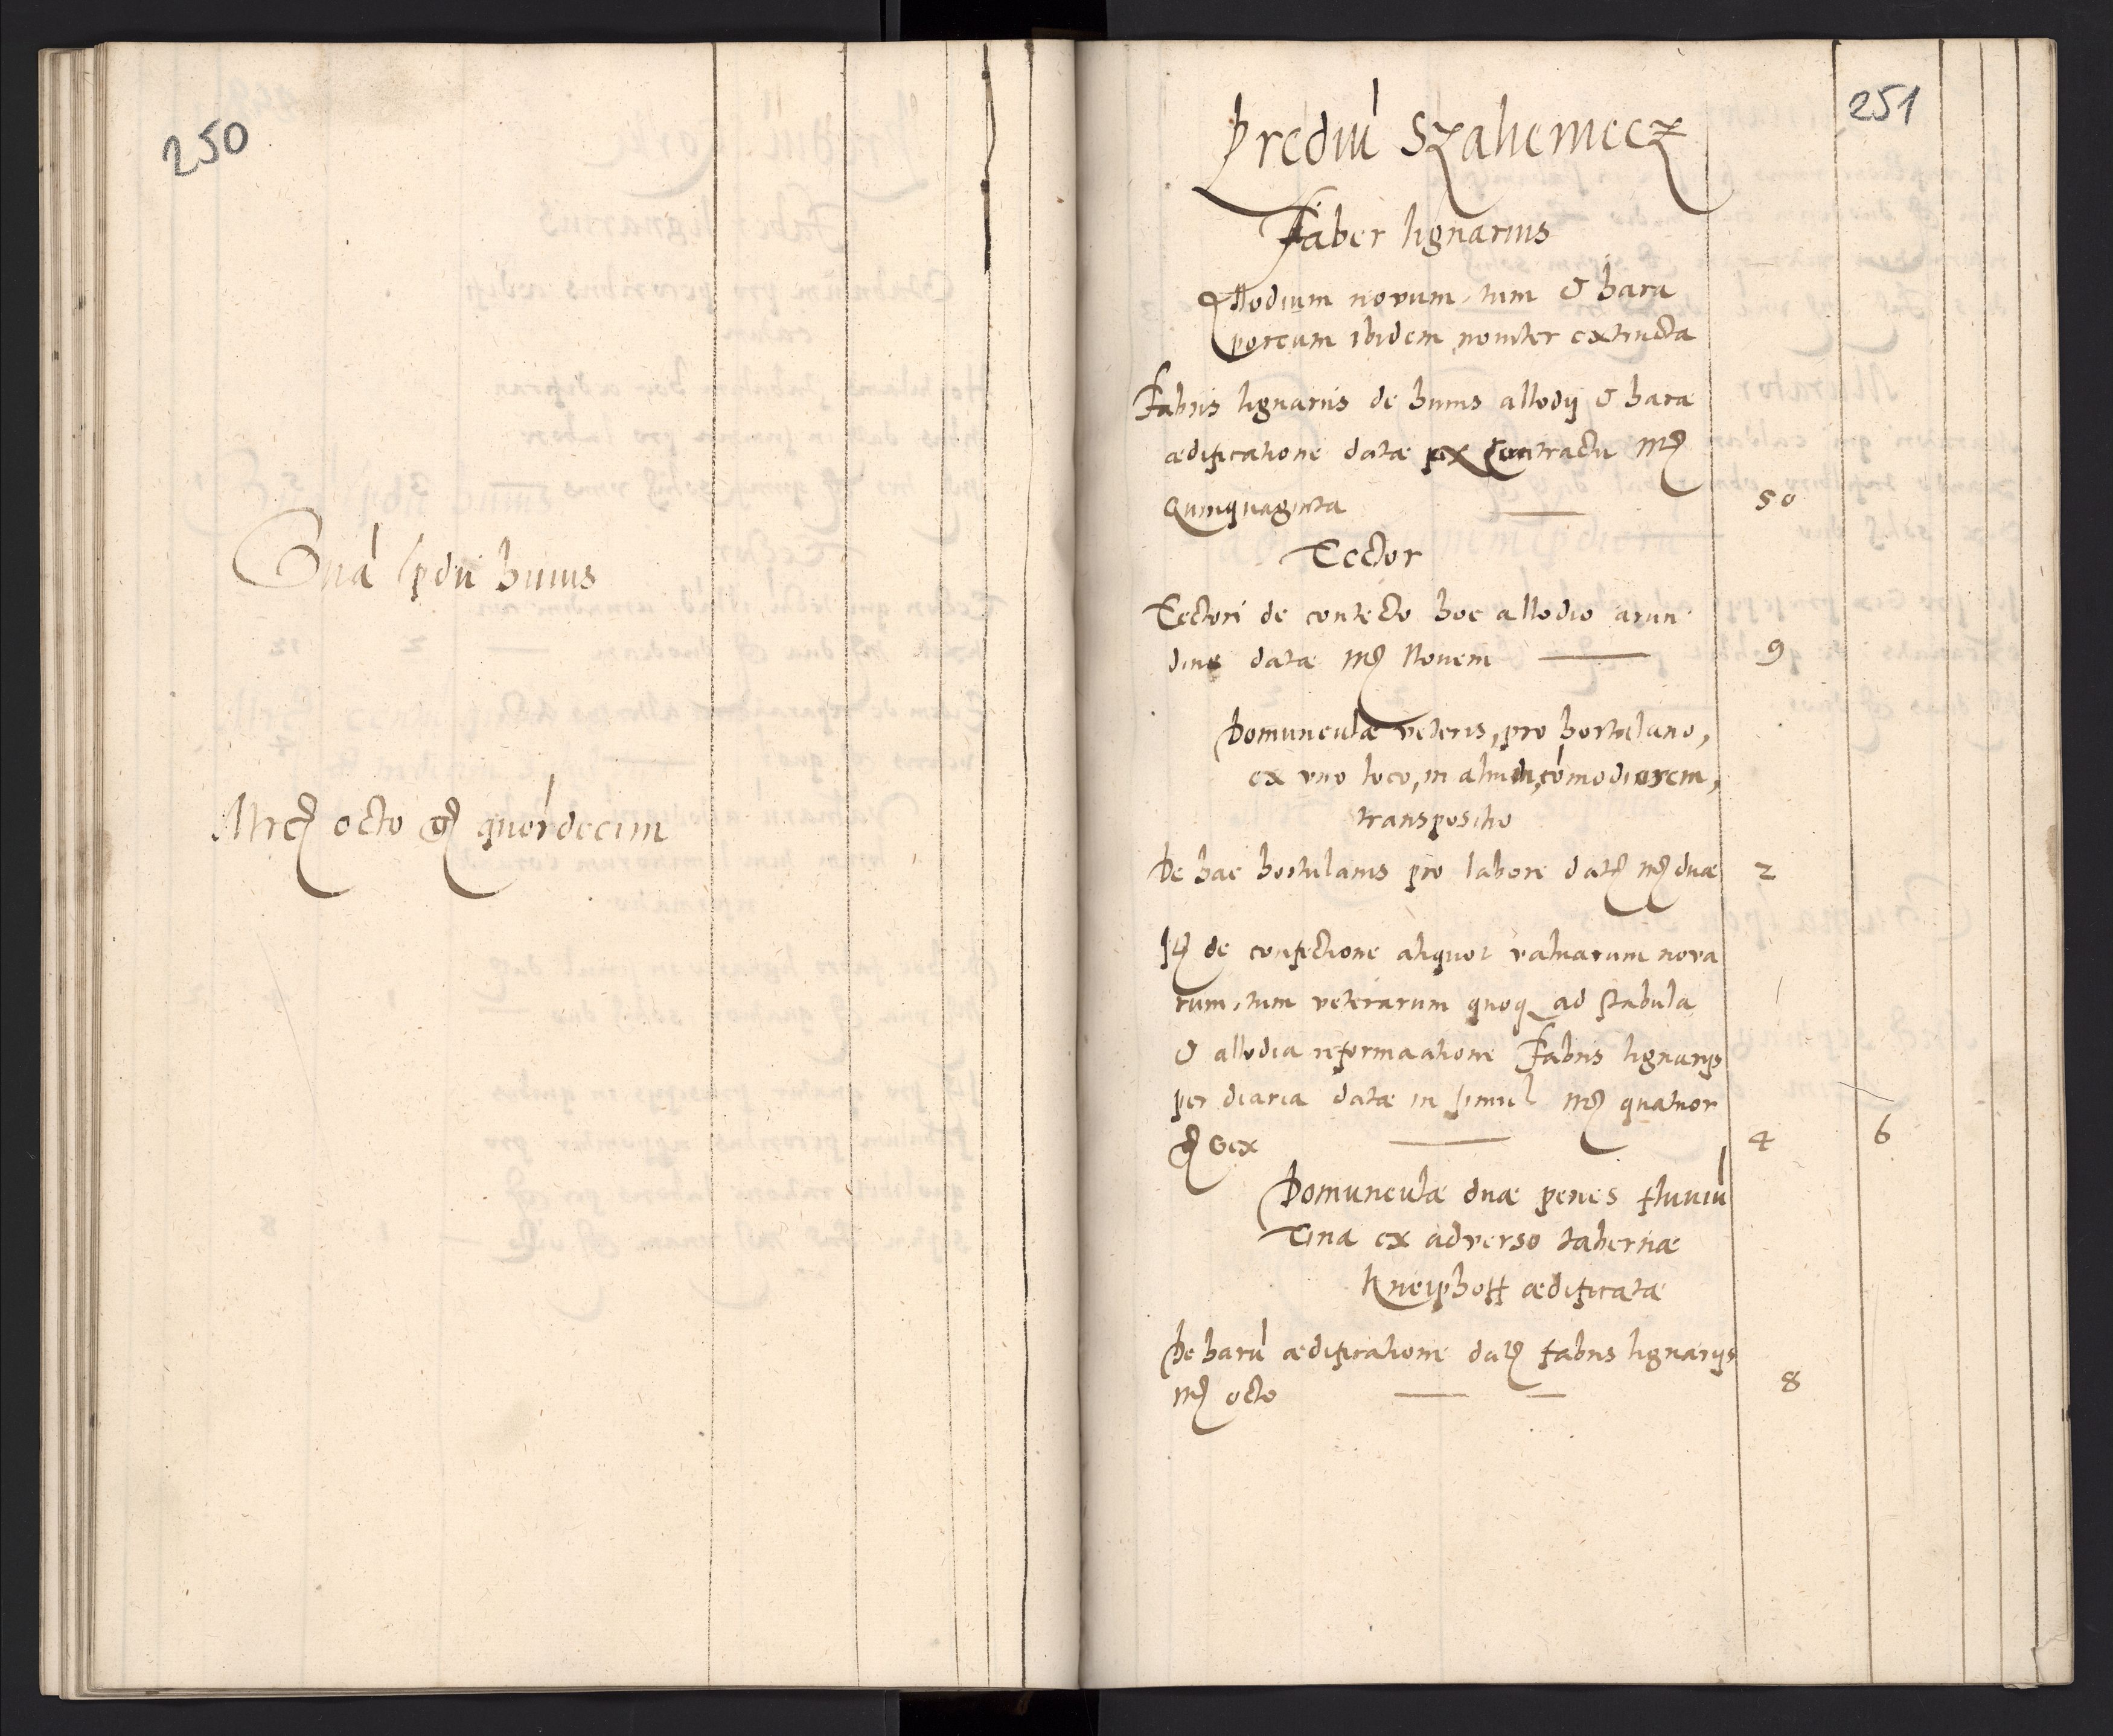 250
Sūma ſpdu huius
Mrcȝ octo gȝ quordecim
251
Prediū Szahemecz
Faber lignarius
Allodium novum, tum & hara
porcum ibidem noviter extructa
Fabris lignariis de huius allodij & haræ
ædificatione datæ ex contractu Mȝ
Quinquaginta — 50
Tector
Tectori de contecto hoc allodio arun
dine datæ Mȝ Novem — 9
Domunculæ veteris, pro hortulano,
ex vno loco, in aliud, cōmodiorem,
transpositio
De hac hortulanis pro labore datȝ Mȝ duæ 2
Itȝ de confectione aliquot valvarum nova
rum, tum veterarum quoq ad stabula
& allodia reformaatione Fabris lignarijs
per diaria datæ in simul Mȝ quatuor
gȝ Sex — 4 6
Domunculæ duæ penes fluviū
Tina ex adverso tabernæ
Kneiphoff ædificatæ
De harū ædificatione datȝ fabris lignarijs
Mȝ octo — — 8